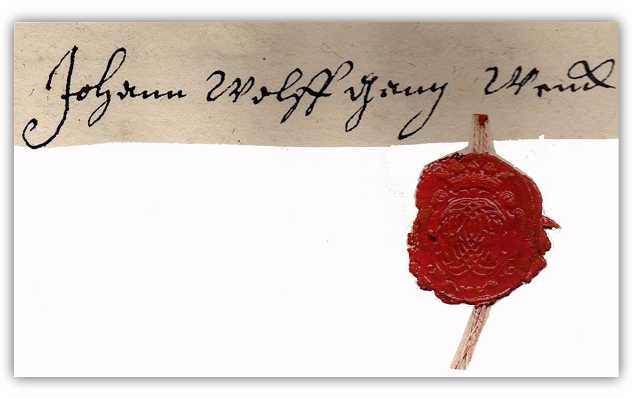 Johann Wolffgang Wenck